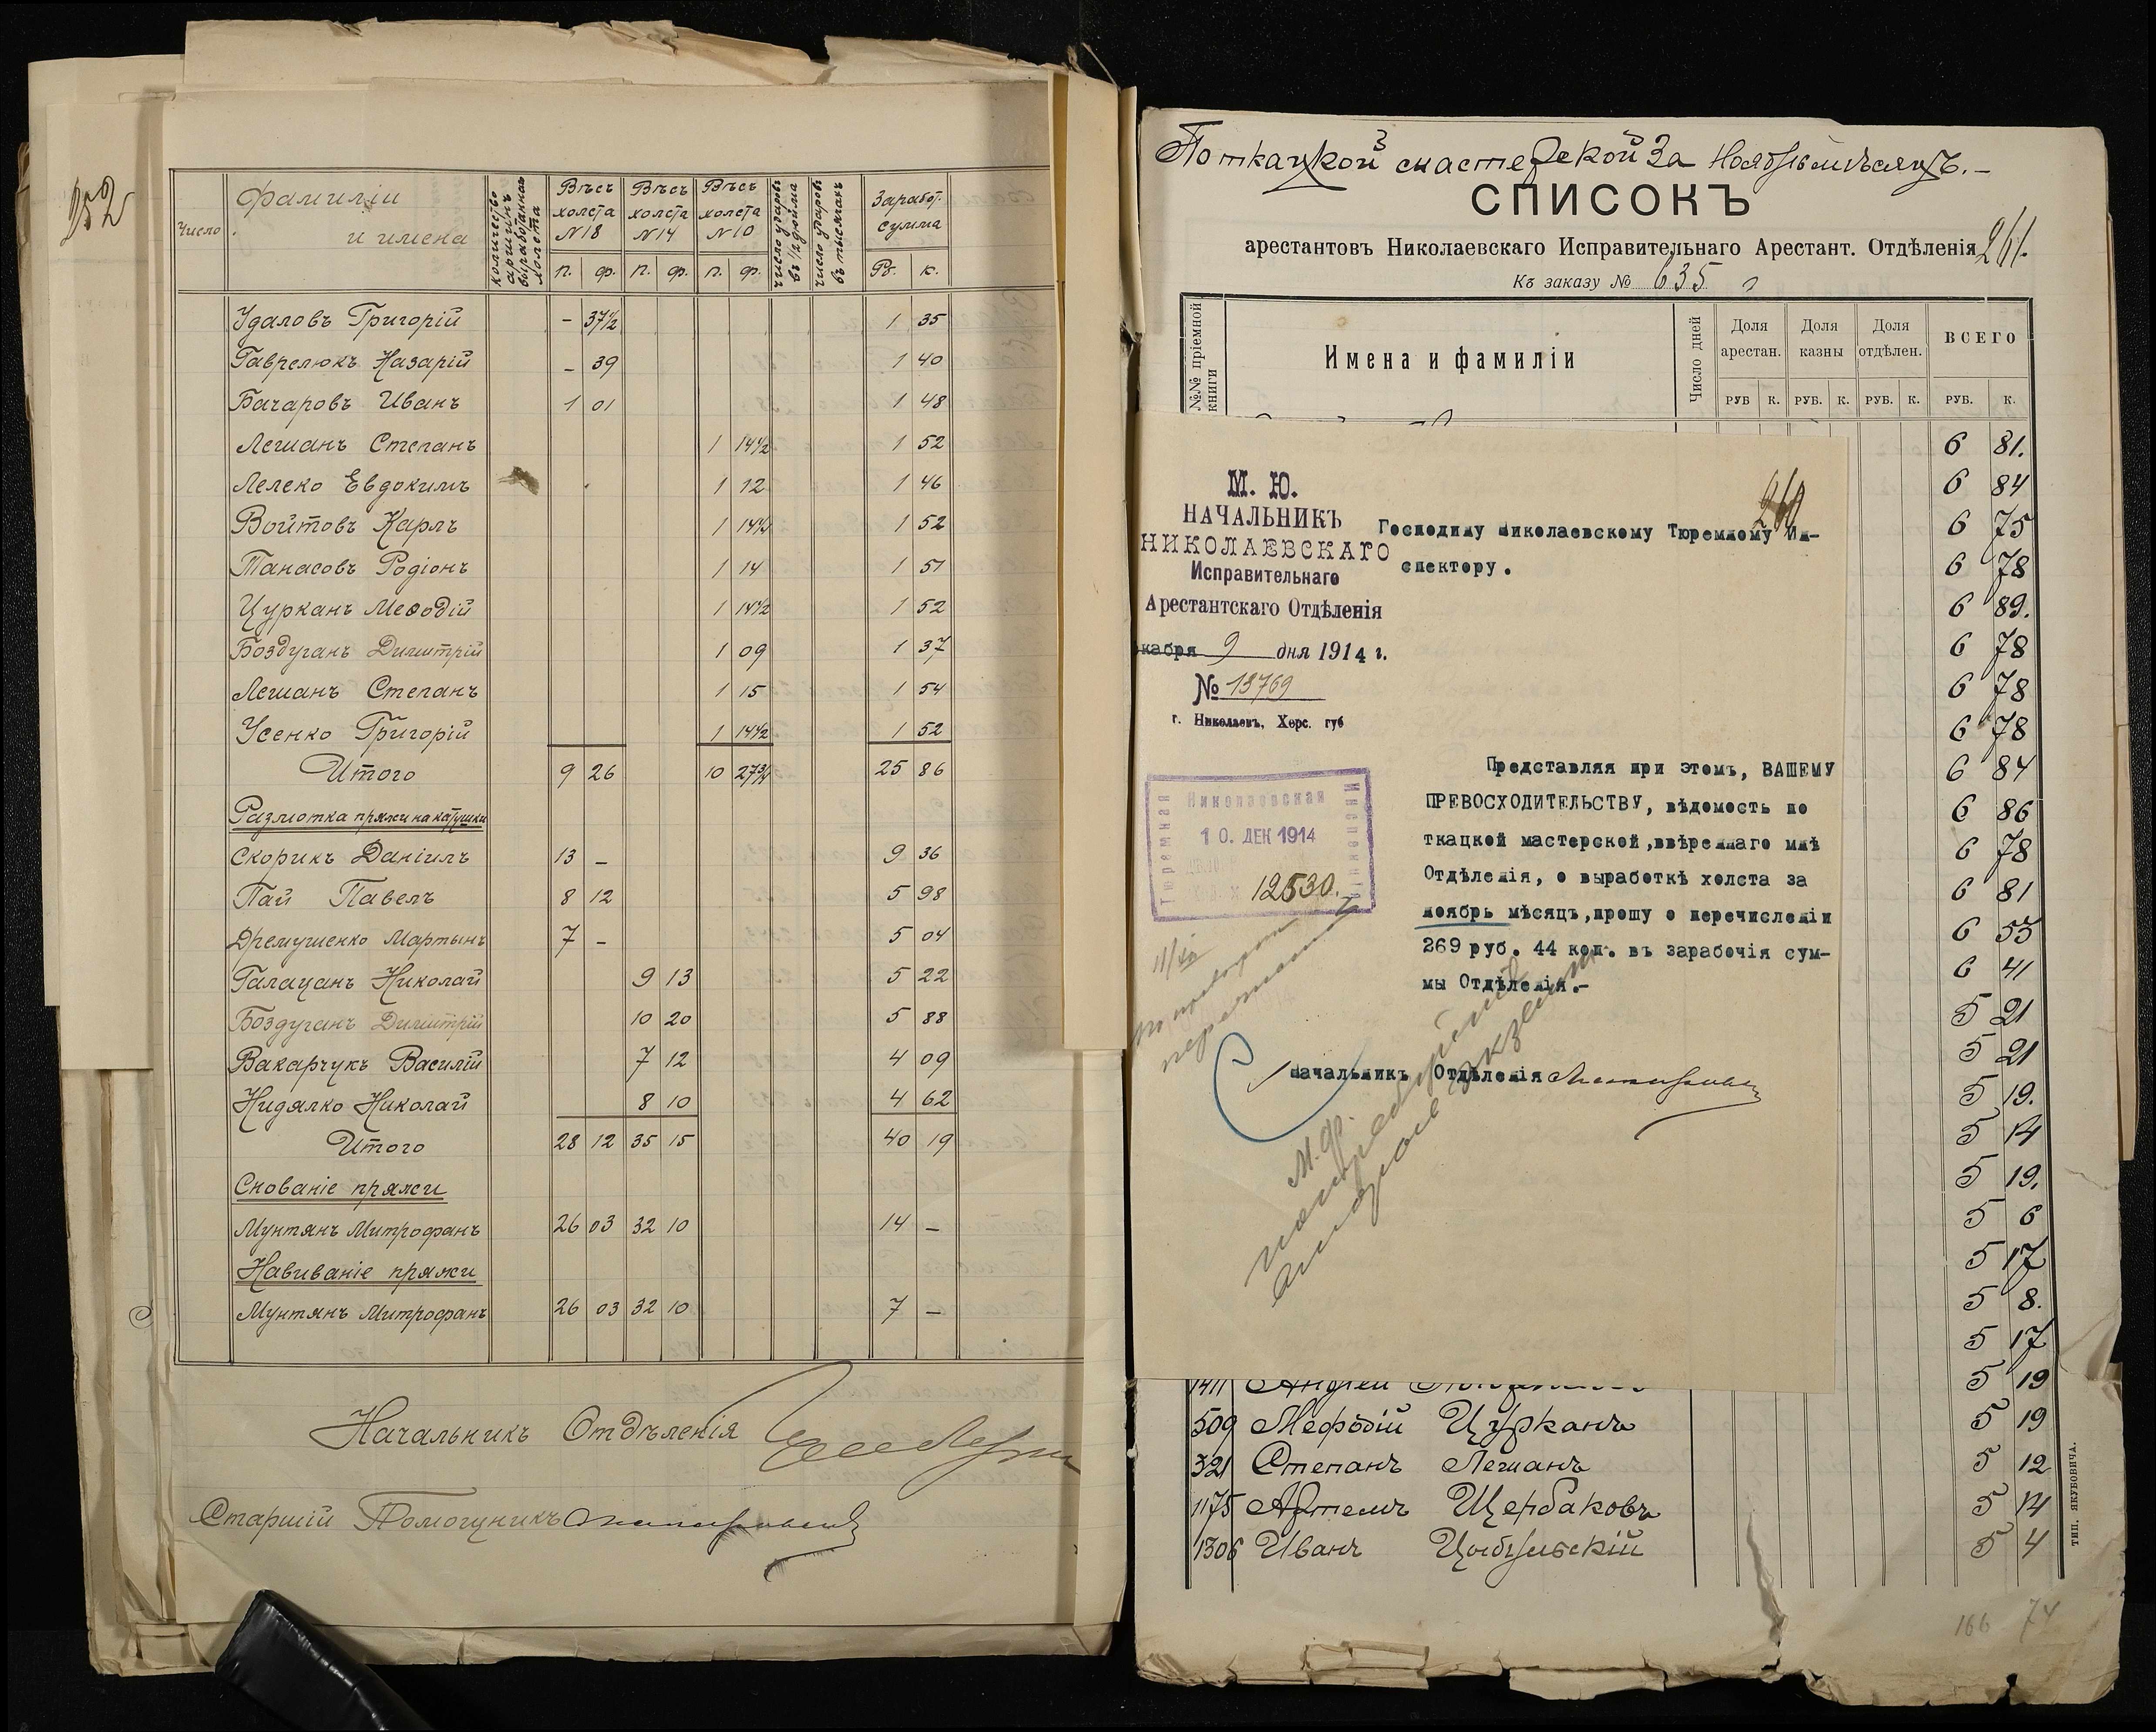 252
Число
Фамиліи
и имена
количество аршинъ выработаннаго холста
Вѣсъ холста N18
Вѣсъ холста N14
Вѣсъ холста N10
число ударовъ въ 1/2 дюйма
число ударовъ въ тысячахъ
Заработ. сумма
п. ф. п. ф. п. ф. Рб. к.
Удаловъ Григорій - 37½ 1 35
Гаврелюкъ Назарій - 39 1 40
Бачаровъ Иванъ 1 01 1 48
Лешанъ Степанъ 1 14½ 1 52
Лелеко Евдокимъ 1 12 1 46
Войтовъ Карлъ 1 14½ 1 52
Танасовъ Родіонъ 1 14 1 51
Цурканъ Меѳодій 1 14½ 1 52
Боздуганъ Димитрій 1 09 1 37
Лешанъ Степанъ 1 15 1 54
Усенко Григорій 1 14½ 1 52
Итого 9 26 10 27¾ 25 86
Размотка пряжи на катушки
Скорикъ Даніилъ 13 - 9 36
Пай Павелъ 8 12 5 98
Дремушенко Мартынъ 7 - 5 04
Галацанъ Николай 9 13 5 22
Боздуганъ Димитрій 10 20 5 88
Вакарчукъ Василій 7 12 4 09
Нидялко Николай 8 10 4 62
Итого 28 12 35 15 40 19
Снованіе пряжи
Мунтянъ Митрофанъ 26 03 32 10 14 -
Навиваніе пряжи
Мунтянъ Митрофанъ 26 03 32 10 7 -
Начальникъ Отдѣленія
Старшій Помощникъ
По ткацкой мастерской за Ноябрь мѣсяцъ.-
СПИСОКЪ
арестантовъ Николаевскаго Исправительнаго Арестант. Отдѣленія
261.
Къ заказу № 635
№№ пріемной книги
Имена и фамиліи
Число дней
Доля арестан.
Доля казны
Доля отдѣлен.
ВСЕГО
РУБ К. РУБ. К. РУБ. К. РУБ. К.
6 81.
6 84
6 75
6 78
6 89.
6 78
6 78
6 78
6 84
6 86
6 78
6 81
6 53
6 41
5 21
5 21
5 19.
5 14
5 19.
5 6
5 17
5 8.
5 17
1411 5 19
509 Мефодій Цурканъ 5 19
321 Степанъ Лешанъ 5 12
1175 Артемъ Щербаковъ 5 14
1306 Иванъ Цыбульскій 5 4
166 74
ТИП. ЯКУБОВИЧА.
260
М. Ю.
НАЧАЛЬНИКЪ
НИКОЛАЕВСКАГО
Исправительнаго
Арестантскаго Отдѣленія
кабря 9 дня 1914 г.
№ 13769
г. Николаевъ, Херс. губ
Господину Николаевскому Тюремному Ин-
спектору.
Николаевская
Тюремная
Инспекція
10. ДЕК 1914
12530.
Представляя при этомъ, ВАШЕМУ
ПРЕВОСХОДИТЕЛЬСТВУ, вѣдомость по
ткацкой мастерской,ввѣреннаго мнѣ
Отдѣленія, о выработкѣ холста за
ноябрь мѣсяцъ,прошу о перечисленіи
269 руб. 44 коп. въ зарабочія сум-
мы Отдѣленія.-
11/XII
Начальникъ Отдѣленія
М. Ф.